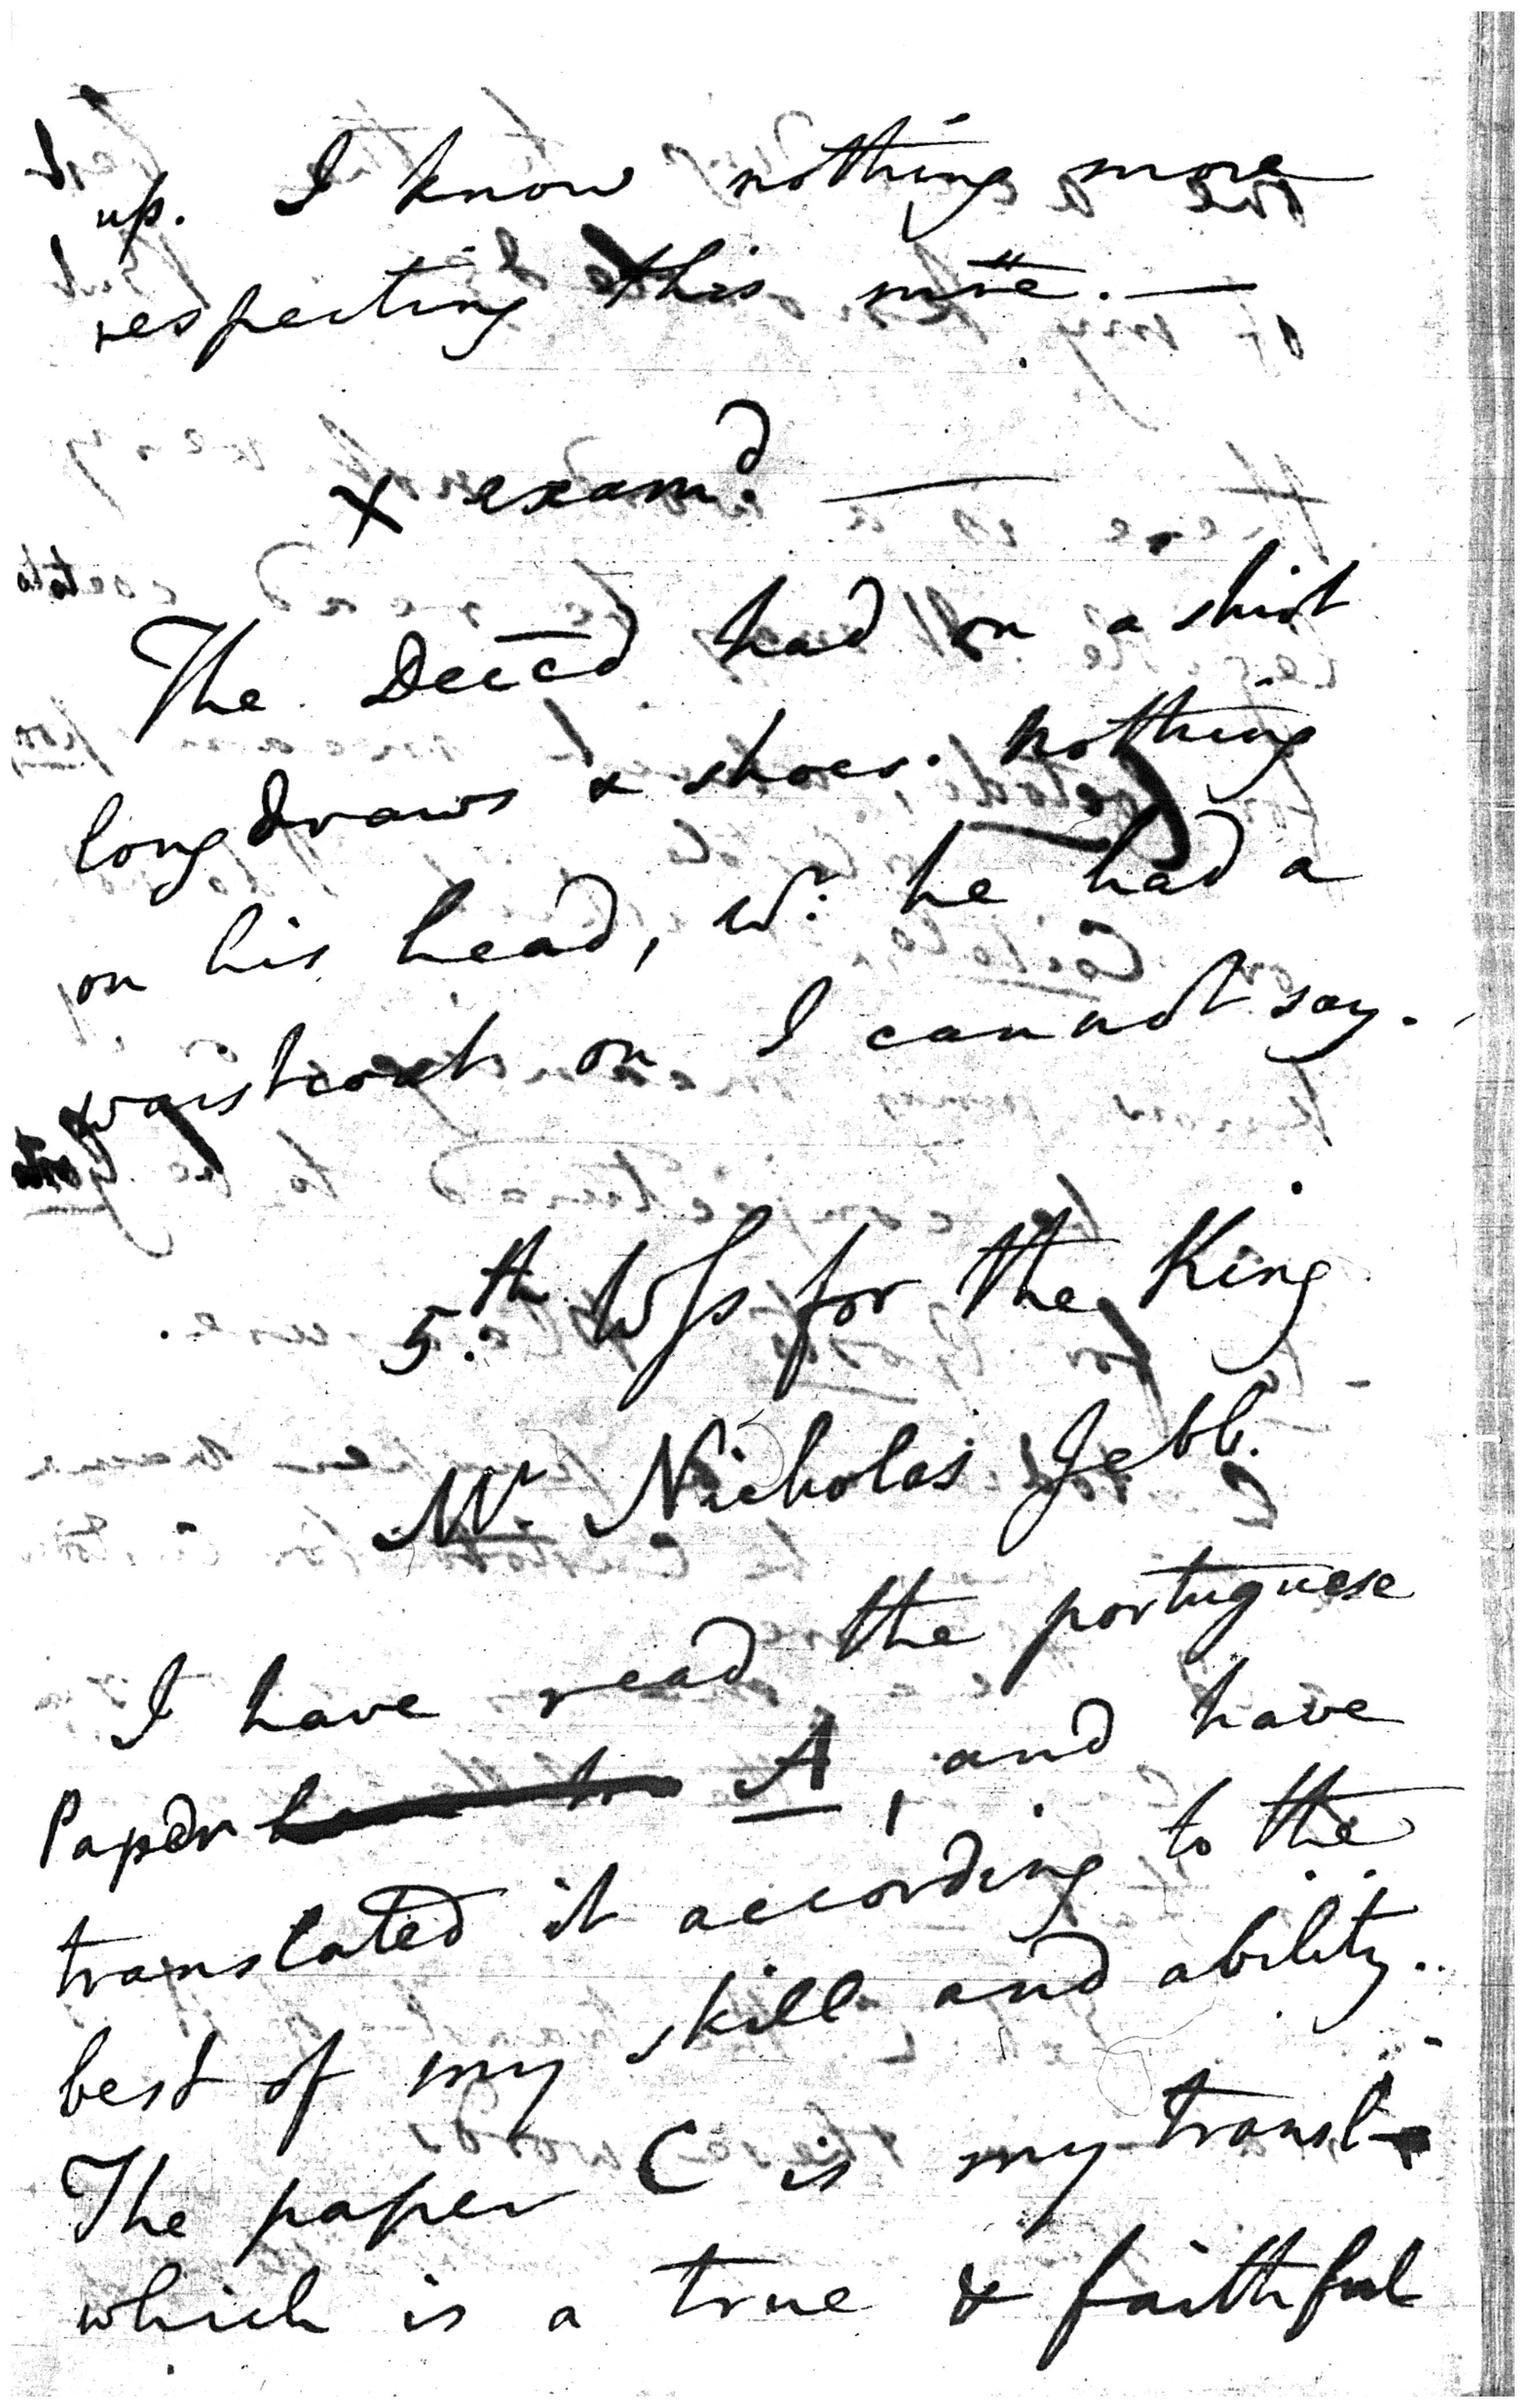 up. I know nothing more
respecting this mre. —
x examd. —
The Deced had on a shirt
long draws & shoes. nothing
on his head, wr: he had a
waistcoat on I cannot say.
5.th Wss for the King
Mr. Nicholas Jebb.
I have read the portuguese
Paper A, and have
translated it according to the
best of my skill and ability..
The paper C is my transl-
which is a true & faithful